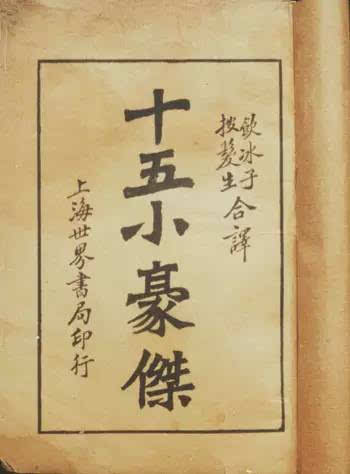 飲冰子
披髮生
合譯
十五小豪傑
上海世界書局印行